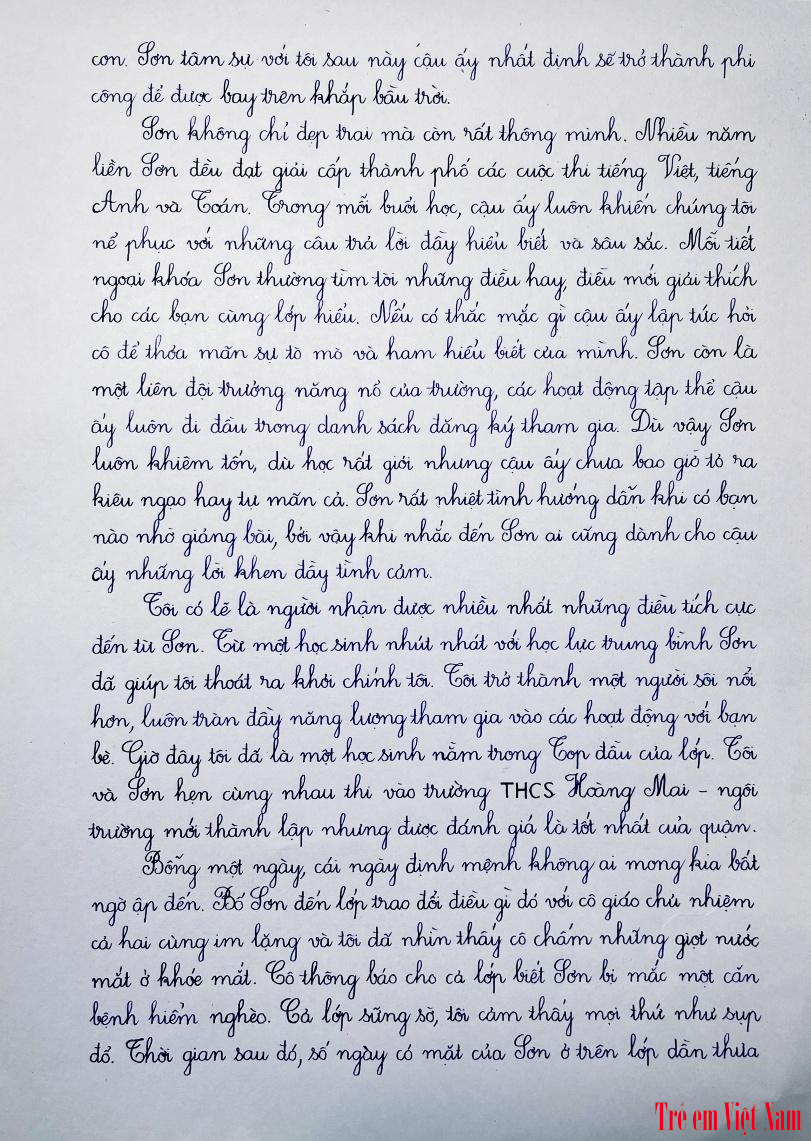 con. Sơn tâm sự với tôi sau này cậu ấy nhất định sẽ trở thành phi
công để được bay trên khắp bầu trời.
Sơn không chỉ đẹp trai mà còn rất thông minh. Nhiều năm
liền Sơn đều đạt giải cấp thành phố các cuộc thi tiếng Việt, tiếng
Anh và Toán. Trong mỗi buổi học, cậu ấy luôn khiến chúng tôi
nể phục với những câu trả lời đầy hiểu biết và sâu sắc. Mỗi tiết
ngoại khóa Sơn thường tìm tòi những điều hay, điều mới giải thích
cho các bạn cùng lớp hiểu. Nếu có thắc mắc gì cậu ấy lập tức hỏi
cô để thỏa mãn sự tò mò và ham hiểu biết của mình. Sơn còn là
một liên đội trưởng năng nổ của trường, các hoạt động tập thể cậu
ấy luôn đi đầu trong danh sách đăng ký tham gia. Dù vậy Sơn
luôn khiêm tốn, dù học rất giỏi nhưng cậu ấy chưa bao giờ tỏ ra
kiêu ngạo hay tự mãn cả. Sơn rất nhiệt tình hướng dẫn khi có bạn
nào nhờ giảng bài, bởi vậy khi nhắc đến Sơn ai cũng dành cho cậu
ấy những lời khen đầy tình cảm.
Tôi có lẽ là người nhận được nhiều nhất những điều tích cực
đến từ Sơn. Từ một học sinh nhút nhát với học lực trung bình Sơn
đã giúp tôi thoát ra khỏi chính tôi. Tôi trở thành một người sôi nổi
hơn, luôn tràn đầy năng lượng tham gia vào các hoạt động với bạn
bè. Giờ đây tôi đã là một học sinh nằm trong Top đầu của lớp. Tôi
và Sơn hẹn cùng nhau thi vào trường THCS Hoàng Mai - ngôi
trường mới thành lập nhưng được đánh giá là tốt nhất của quận.
Bỗng một ngày, cái ngày định mệnh không ai mong kia bất
ngờ ập đến. Bố Sơn đến lớp trao đổi điều gì đó với cô giáo chủ nhiệm
cả hai cùng im lặng và tôi đã nhìn thấy cô chấm những giọt nước
mắt ở khóe mắt. Cô thông báo cho cả lớp biết Sơn bị mắc một căn
bệnh hiểm nghèo. Cả lớp sững sờ, tôi cảm thấy mọi thứ như sụp
đổ. Thời gian sau đó, số ngày có mặt của Sơn ở trên lớp dần thưa
Trẻ em Việt Nam